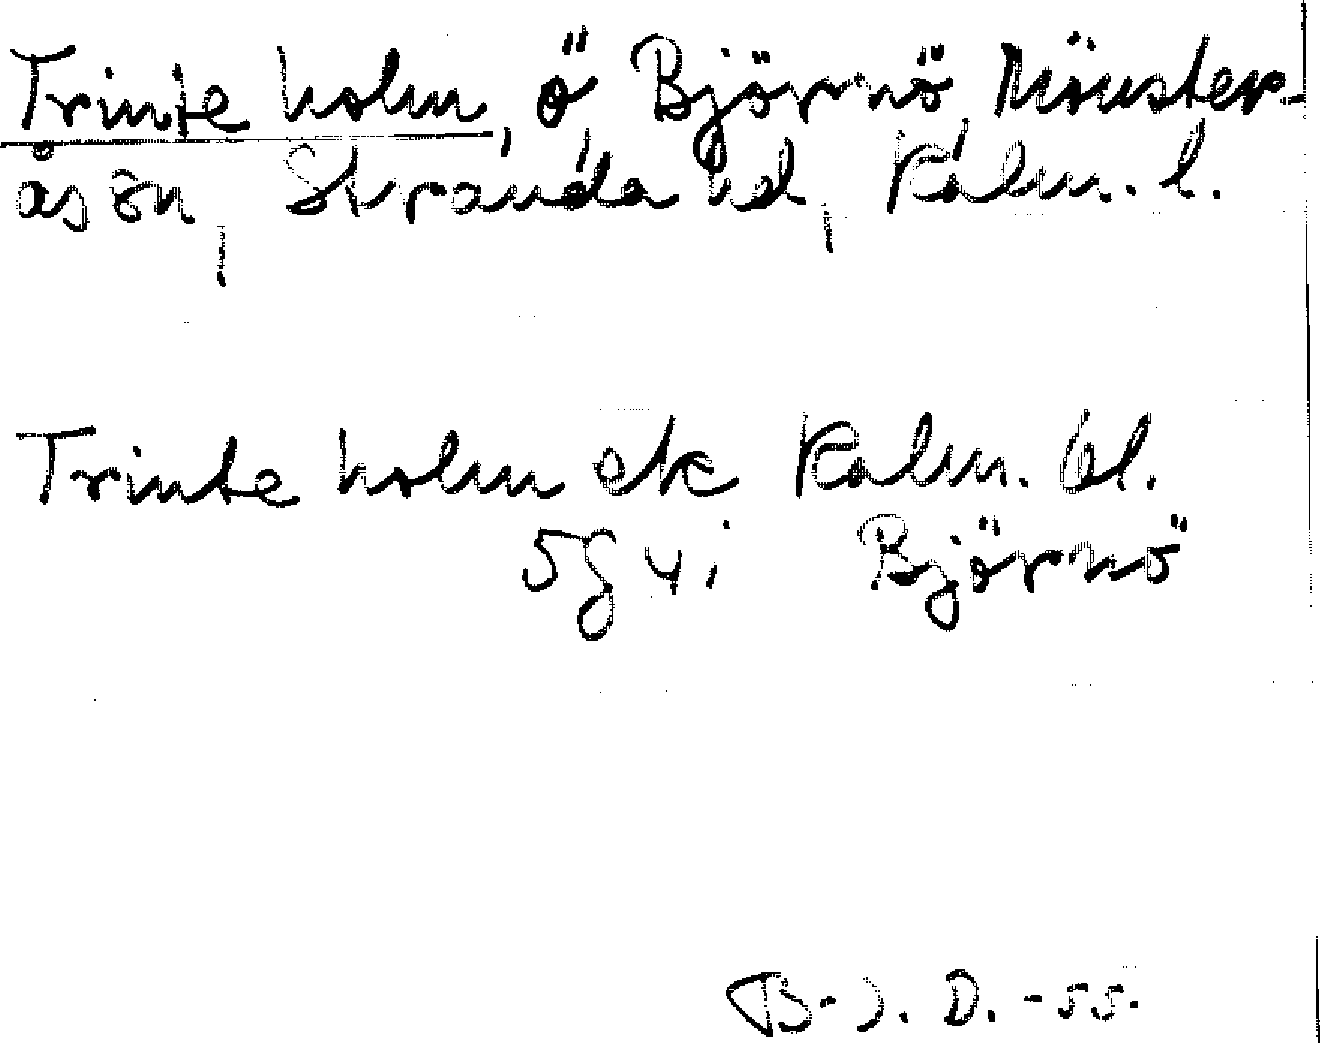 Trinte holm, ö Björnö Mönster-
ås sn, Stranda hd, Kalm. l.
Trinte holm ek Kalm. bl.
5g 4 i Björnö
B-J. D. -55.